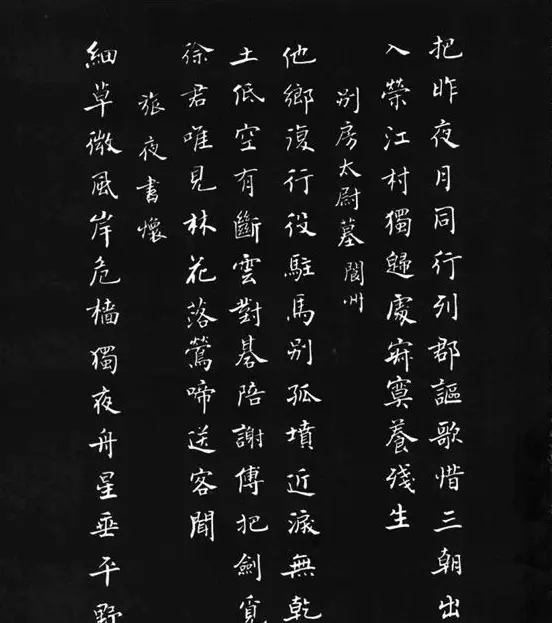 把昨夜月同行列郡謳歌惜三朝出
入榮江村獨歸處寂寞養殘生
别房太尉墓 閬州
他鄉復行役駐馬别孤墳近淚無乾
土低空有斷雲對碁陪謝傅把劍覓
徐君唯見林花落鶯啼送客聞
旅夜書懷
細草微風岸危檣獨夜舟星垂平野